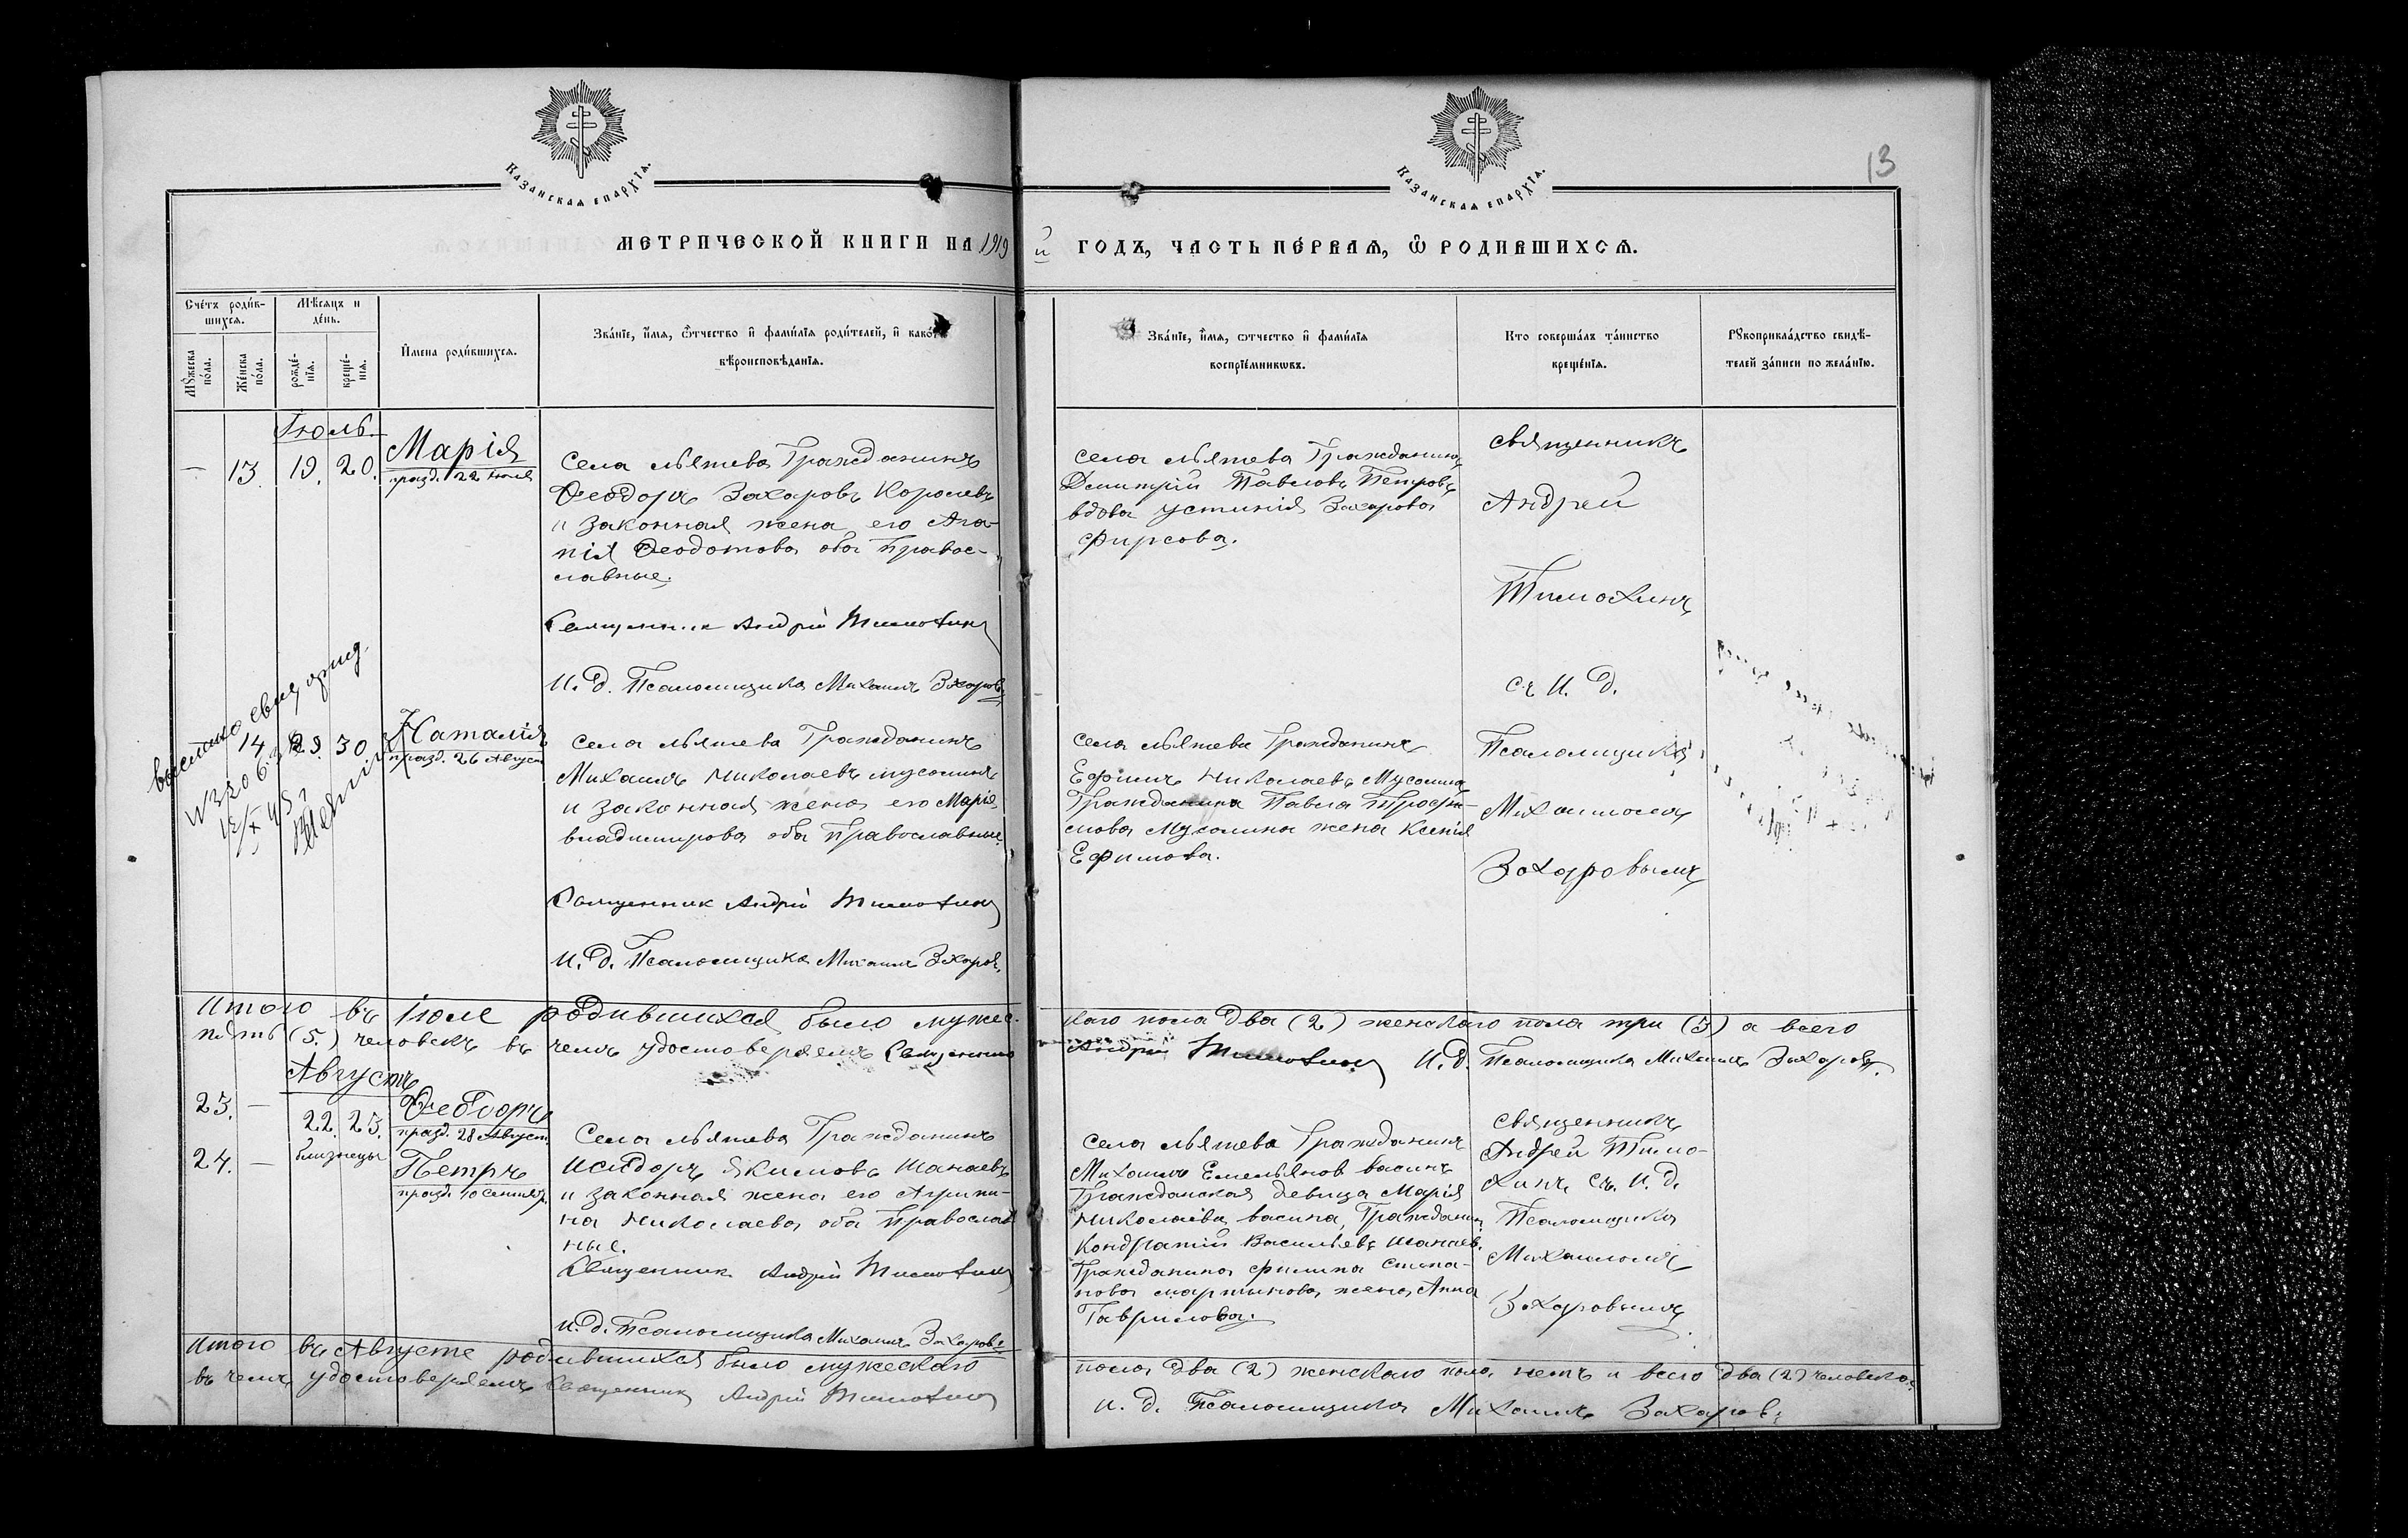 КАЗАНСКАЯ ЕПАРХІЯ.
КАЗАНСКАЯ ЕПАРХІЯ.
13
МЕТРИЧЕСКОЙ КНИГИ НА 1919 й ГОДЪ, ЧАСТЬ ПЕ́РВАЯ, Ѿ РОДИВШИХСЯ.
Сче́тъ роди́в-
шихся.
Мѣ́сяцъ и
де́нь.
Мꙋ́жеска
по́ла.
Же́нска
по́ла.
рожде́-
нїя.
креще́-
нїя.
И҆мена роди́вшихся.
Зва́нїе, и҆́мя, ѻ҆́тчество и҆ фами́лїя роди́телей, и҆ како́гѡ
вѣроисповѣ́данїя.
Зва́нїе, и҆́мя, ѻтчество и҆ фами́лїя
воспрїе́мникѡвъ.
Кто соверша́лъ та́инство
креще́нїя.
Рꙋкоприкла́дство свидѣ́-
телей за́писи по жела́нїю.
Іюль.
— 13. 19. 20.
Марія
празд. 22 июля
Села Лятева Гражданинъ
Ѳеодоръ Захаровъ Королевъ
и законная жена его Ага-
пія Ѳеодотова оба правос-
лавные.
Священник Андрій Тимохин
И. д. Псаломщика Михаилъ Захаровъ
села Лятева Гражданинъ
Димитрій Павловъ Петровъ
вдова Устинія Захарова
Фирсова.
Священникъ
Андрей
Тимохинъ
съ И. д.
Псаломщика
Михаиломъ
Захаровымъ
14 29. 30
Наталія
празд. 26 Август
Села Лятева Гражданинъ
Михаилъ Николаевъ Мусолинъ
и законная жена его Марія
Владимирова оба Православные.
Священник Андрій Тимохин
И. д. Псаломщика Михаилъ Захаровъ
Села Лятева Гражданинъ
Ефимъ Николаевъ Мусолинъ
Гражданина Павла Трофи-
мова Мусолина жена Ксенія
Ефимова.
Итого въ Іюле родившихся было мужес-
каго пола два (2) женскаго пола три (3) а всего
пять (5.) человекъ въ чемъ удостоверяемъ Священник
Андрій Тимохин И. д. Псаломщика Михаилъ Захаровъ.
Августъ
23. — 22. 23.
Ѳеодоръ
празд. 28 Август.
24. — близнецы
Петръ
празд. 10 Сентябр.
Села Лятева Гражданинъ
Исидоръ Якимовъ Шанаевъ
и законная жена его Агрипи-
на Николаева оба Православ
ные.
Священник Андрій Тимохин
И. д. Псаломщика Михаилъ Захаровъ
села Лятева Гражданинъ
Михаилъ Емельянов Васинъ
Гражданская девица Марія
Николаева Васина, Гражданин
Кондратій Васильевъ Шанаев.
Гражданина Филипа Степа-
нова Мартынова жена Анна
Гаврилова.
Священникъ
Андрей Тимо-
хинъ съ И. д.
Псаломщика
Михаиломъ
Захаровымъ
Итого въ Августе родившихся было мужескаго
пола два (2) женскаго пола нетъ и всего два (2) человека
въ чемъ удостоверяемъ Священник Андрій Тимохин
и. д. Псаломщика Михаилъ Захаровъ